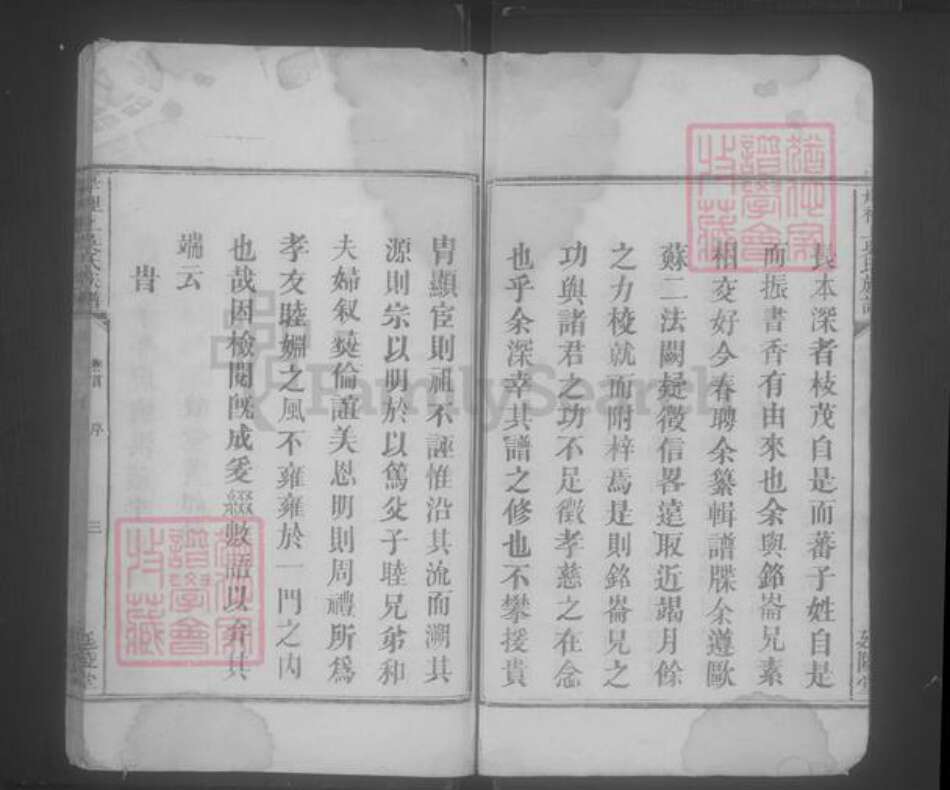 長本深者枝茂自是而蕃子姓自是
而振書香有由來也余與銘崙兄素
相交好今春聘余纂輯譜牒余遵歐
蘇二法闕疑徵信畧遠取近竭月餘
之力稜就而附梓焉是則銘崙兄之
功與諸君之功不足徵孝慈之在念
也乎余深幸其譜之修也不攀援貴
冑顯宦則祖不誣惟沿其流而溯其
源則宗以明於以篤父子睦兄弟和
夫婦叙彝倫誼美恩明則周禮所爲
孝友睦婣之風不雍雍於一門之內
也哉因檢閱旣成爰綴數語以弁其
端云
旹
序
三
FamilySearch
譜學會
收藏
譜學會
收藏